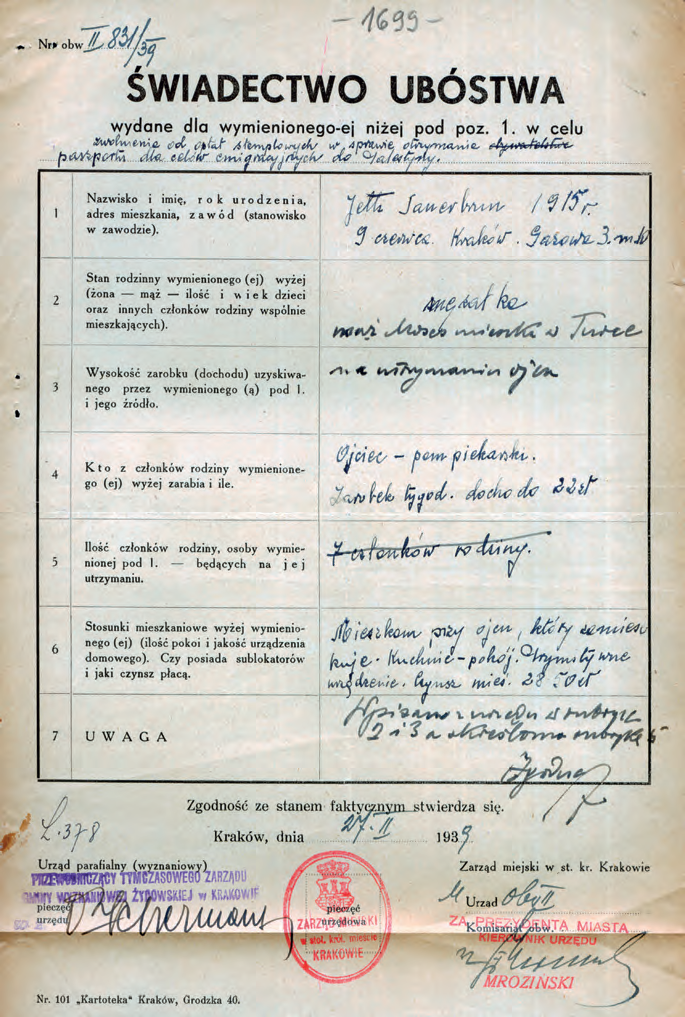 - 1699 -
Nr. obw II 831/39
ŚWIADECTWO UBÓSTWA
wydane dla wymienionego-ej niżej pod poz. 1. w celu
zwolnienia od opłat stemplowych w sprawie otrzymania obywatelstwa
paszportu dla celów emigracyjnych do Palestyny.
1
Nazwisko i imię, rok urodzenia,
adres mieszkania, zawód (stanowisko
w zawodzie).
Jetti 1915 r.
9 czerwca. Kraków. Gazowa 3. m
2
Stan rodzinny wymienionego (ej) wyżej
(żona — mąż — ilość i wiek dzieci
oraz innych członków rodziny wspólnie
mieszkających).
mężatka
mąż Moses mieszka w
3
Wysokość zarobku (dochodu) uzyskiwa-
nego przez wymienionego (ą) pod 1.
i jego źródło.
na utrzymaniu ojca
4
Kto z członków rodziny wymienione-
go (ej) wyżej zarabia i ile.
Ojciec – pom piekarski.
Zarobek tygod. dochodo 22 zł
5
Ilość członków rodziny, osoby wymie-
nionej pod 1. — będących na jej
utrzymaniu.
7 członków rodziny.
6
Stosunki mieszkaniowe wyżej wymienio-
nego (ej) (ilość pokoi i jakość urządzenia
domowego). Czy posiada sublokatorów
i jaki czynsz płacą.
Mieszkam przy ojcu, który zamiesz
kuje. Kuchnię – pokój. Prymitywne
urządzenie. Czynsz mies. 28 50 zł
7
UWAGA
Wpisano z urzędu w rubryce
2 i 3 a skreślono rubrykę 5
Zgodność ze stanem faktycznym stwierdza się.
L. 378
Kraków, dnia 27. II 1939
Urząd parafialny (wyznaniowy)
PRZEWODNICZĄCY TYMCZASOWEGO ZARZĄDU
GMINY WYZNANIOWEJ ŻYDOWSKIEJ w KRAKOWIE
pieczęć
urzędu
pieczęć
urzędowa
ZARZĄD MIEJSKI
w stoł. król. mieście
KRAKOWIE
Zarząd miejski w st. kr. Krakowie
Urząd Obw II
Komisariat obw.
ZA PREZYDENTA MIASTA
KIEROWNIK URZĘDU
MROZIŃSKI
Nr. 101 „Kartoteka" Kraków, Grodzka 40.